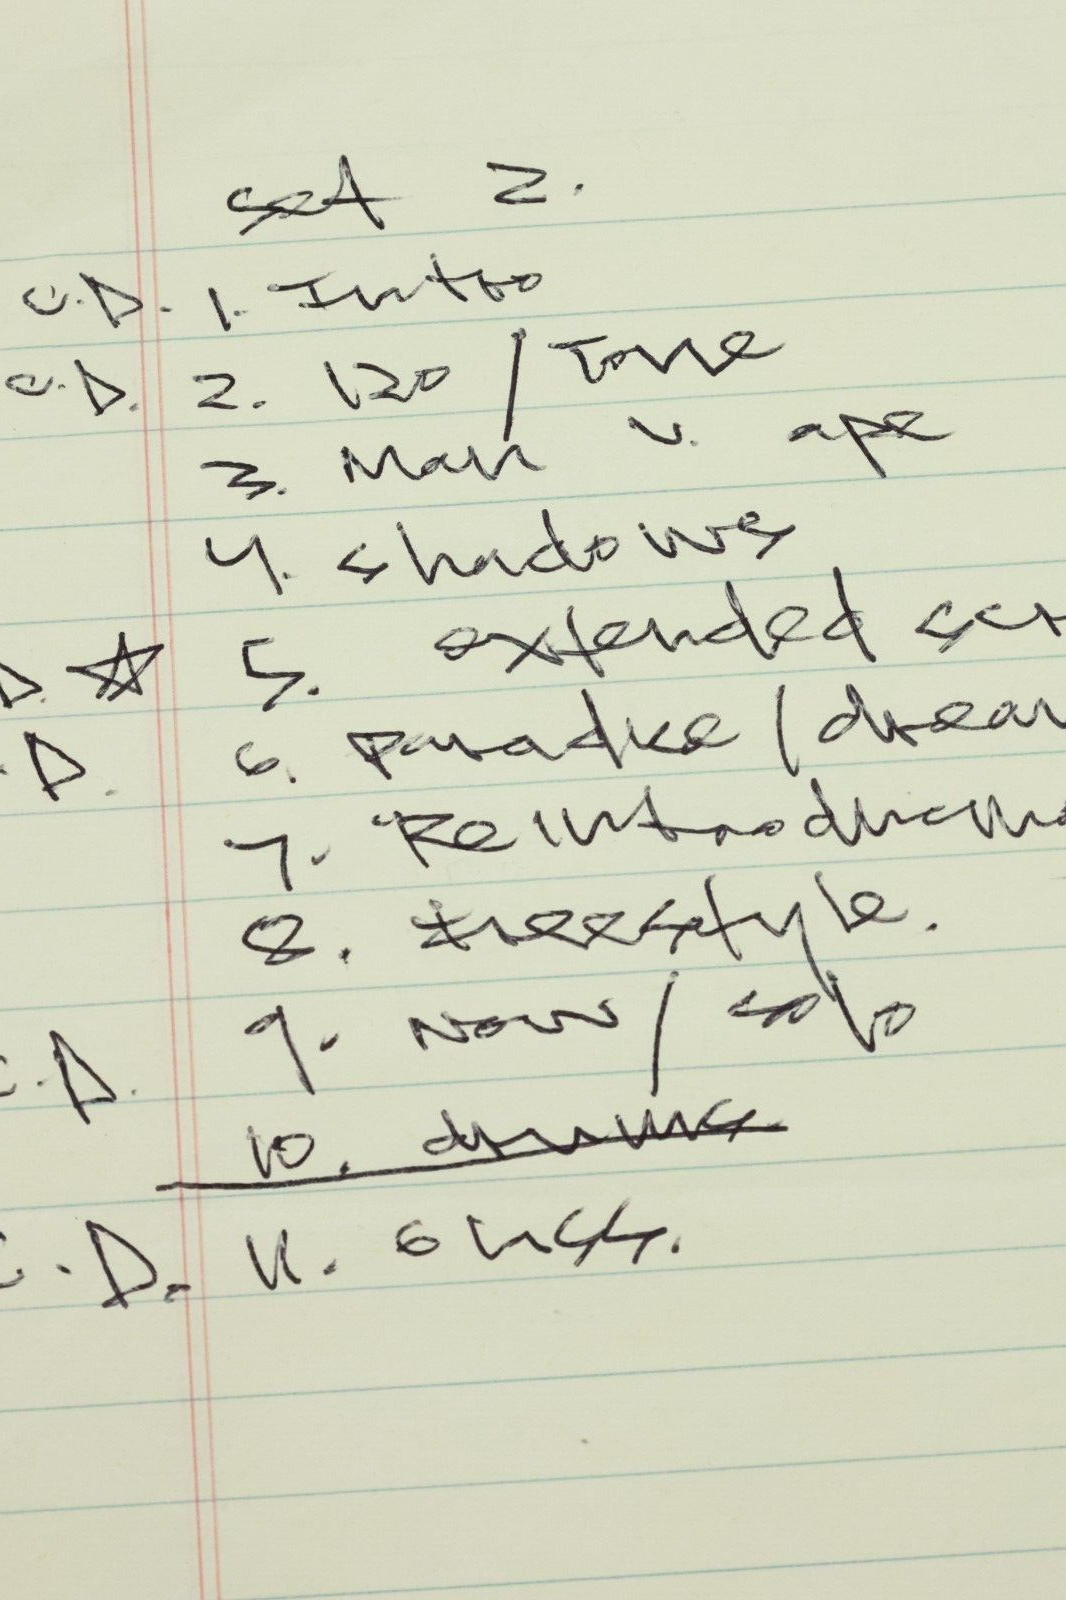 set 2.
C.D. 1. Intro
C.D. 2. 120 / Tone
3. Man v. ape
4. shadows
D. ☆ 5. extended scr
.D. 6. Paradise / dream
7. Reintroducing
8. freestyle.
C.D. 9. Now / solo
10. drums
C.D. 11.